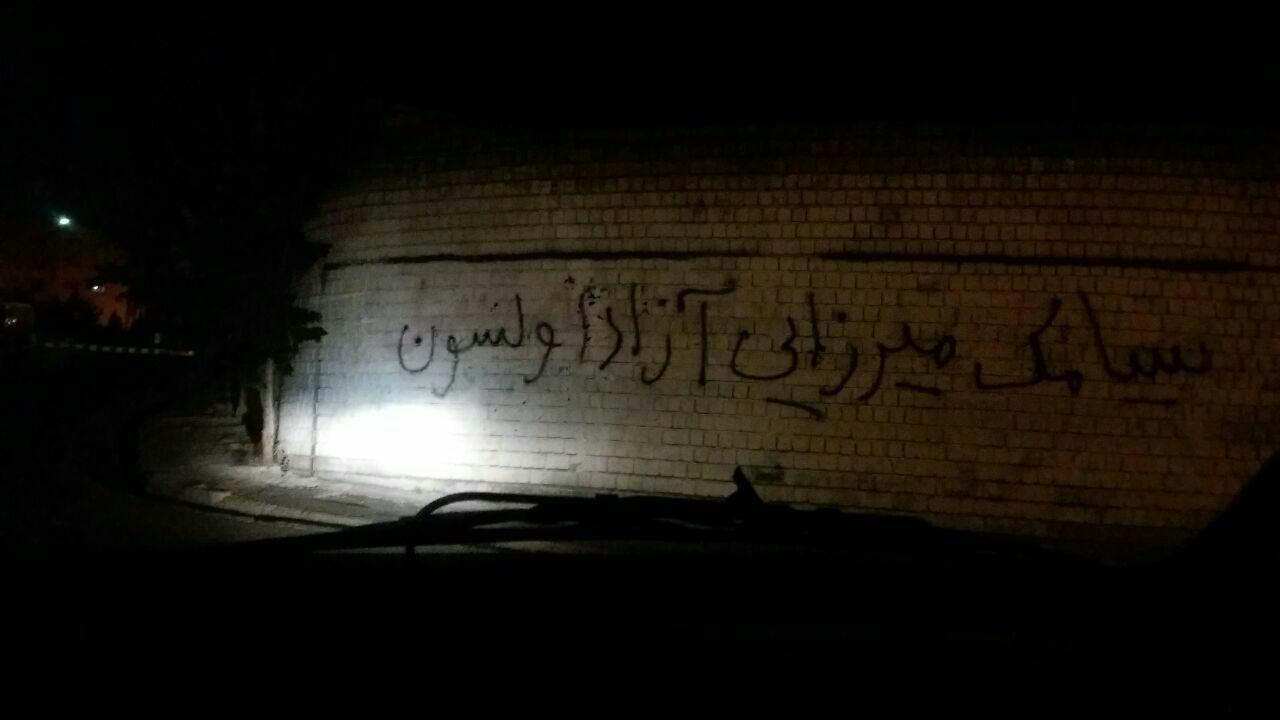 سیامک میرزایی آزاد اولسون